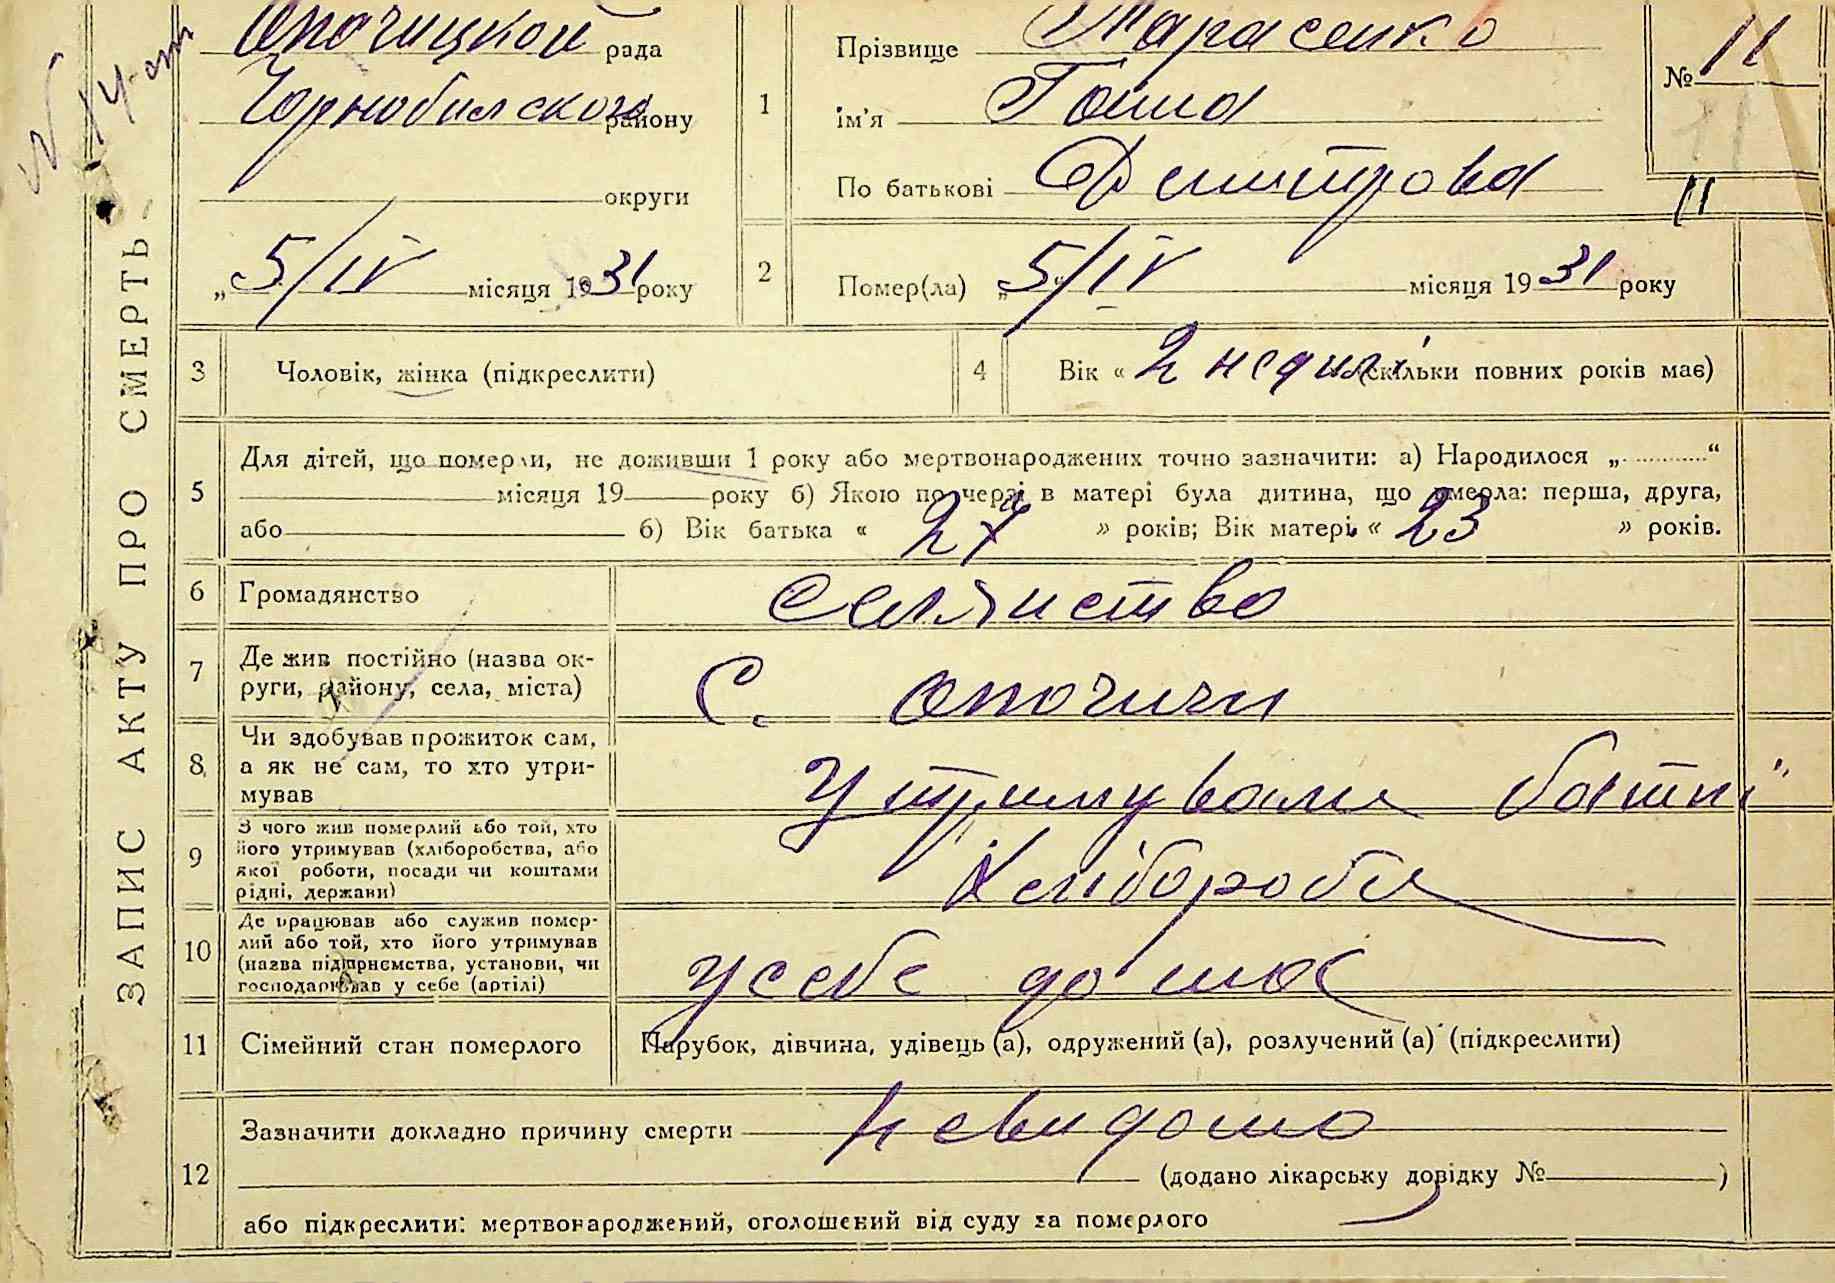 ЗАПИС АКТУ ПРО СМЕРТЬ.
Опочицкой рада
Чорнобилской району
округи
„5/IV місяця 1931 року
1
Прізвище Тарасенко
ім'я Гаша
По батькові Дмитрова
№ 11
11
11
2
Помер(ла) „5/IV“ місяця 1931 року
3
Чоловік, жінка (підкреслити)
4
Вік « 2 неділі скільки повних років має)
5
Для дітей, що померли, не доживши 1 року або мертвонароджених точно зазначити: а) Народилося „............“
місяця 19 року б) Якою по черзі в матері була дитина, що вмерла: перша, друга,
або б) Вік батька « 27 » років; Вік матері « 23 » років.
6
Громадянство селянство
7
Де жив постійно (назва ок-
руги, району, села, міста)
С. Опочичи
8
Чи здобував прожиток сам,
а як не сам, то хто утри-
мував
утримували батьки
9
З чого жив померлий або той, хто
його утримував (хліборобства, або
якої роботи, посади чи коштами
рідні, держави)
Хлібороби
10
Де працював або служив помер-
лий або той, хто його утримував
(назва підприємства, установи, чи
господарював у себе (артілі)
у себе дома
11
Сімейний стан померлого
Парубок, дівчина, удівець (а), одружений (а), розлучений (а) (підкреслити)
12
Зазначити докладно причину смерти невидомо
(додано лікарську довідку № )
або підкреслити: мертвонароджений, оголошений від суду за померлого